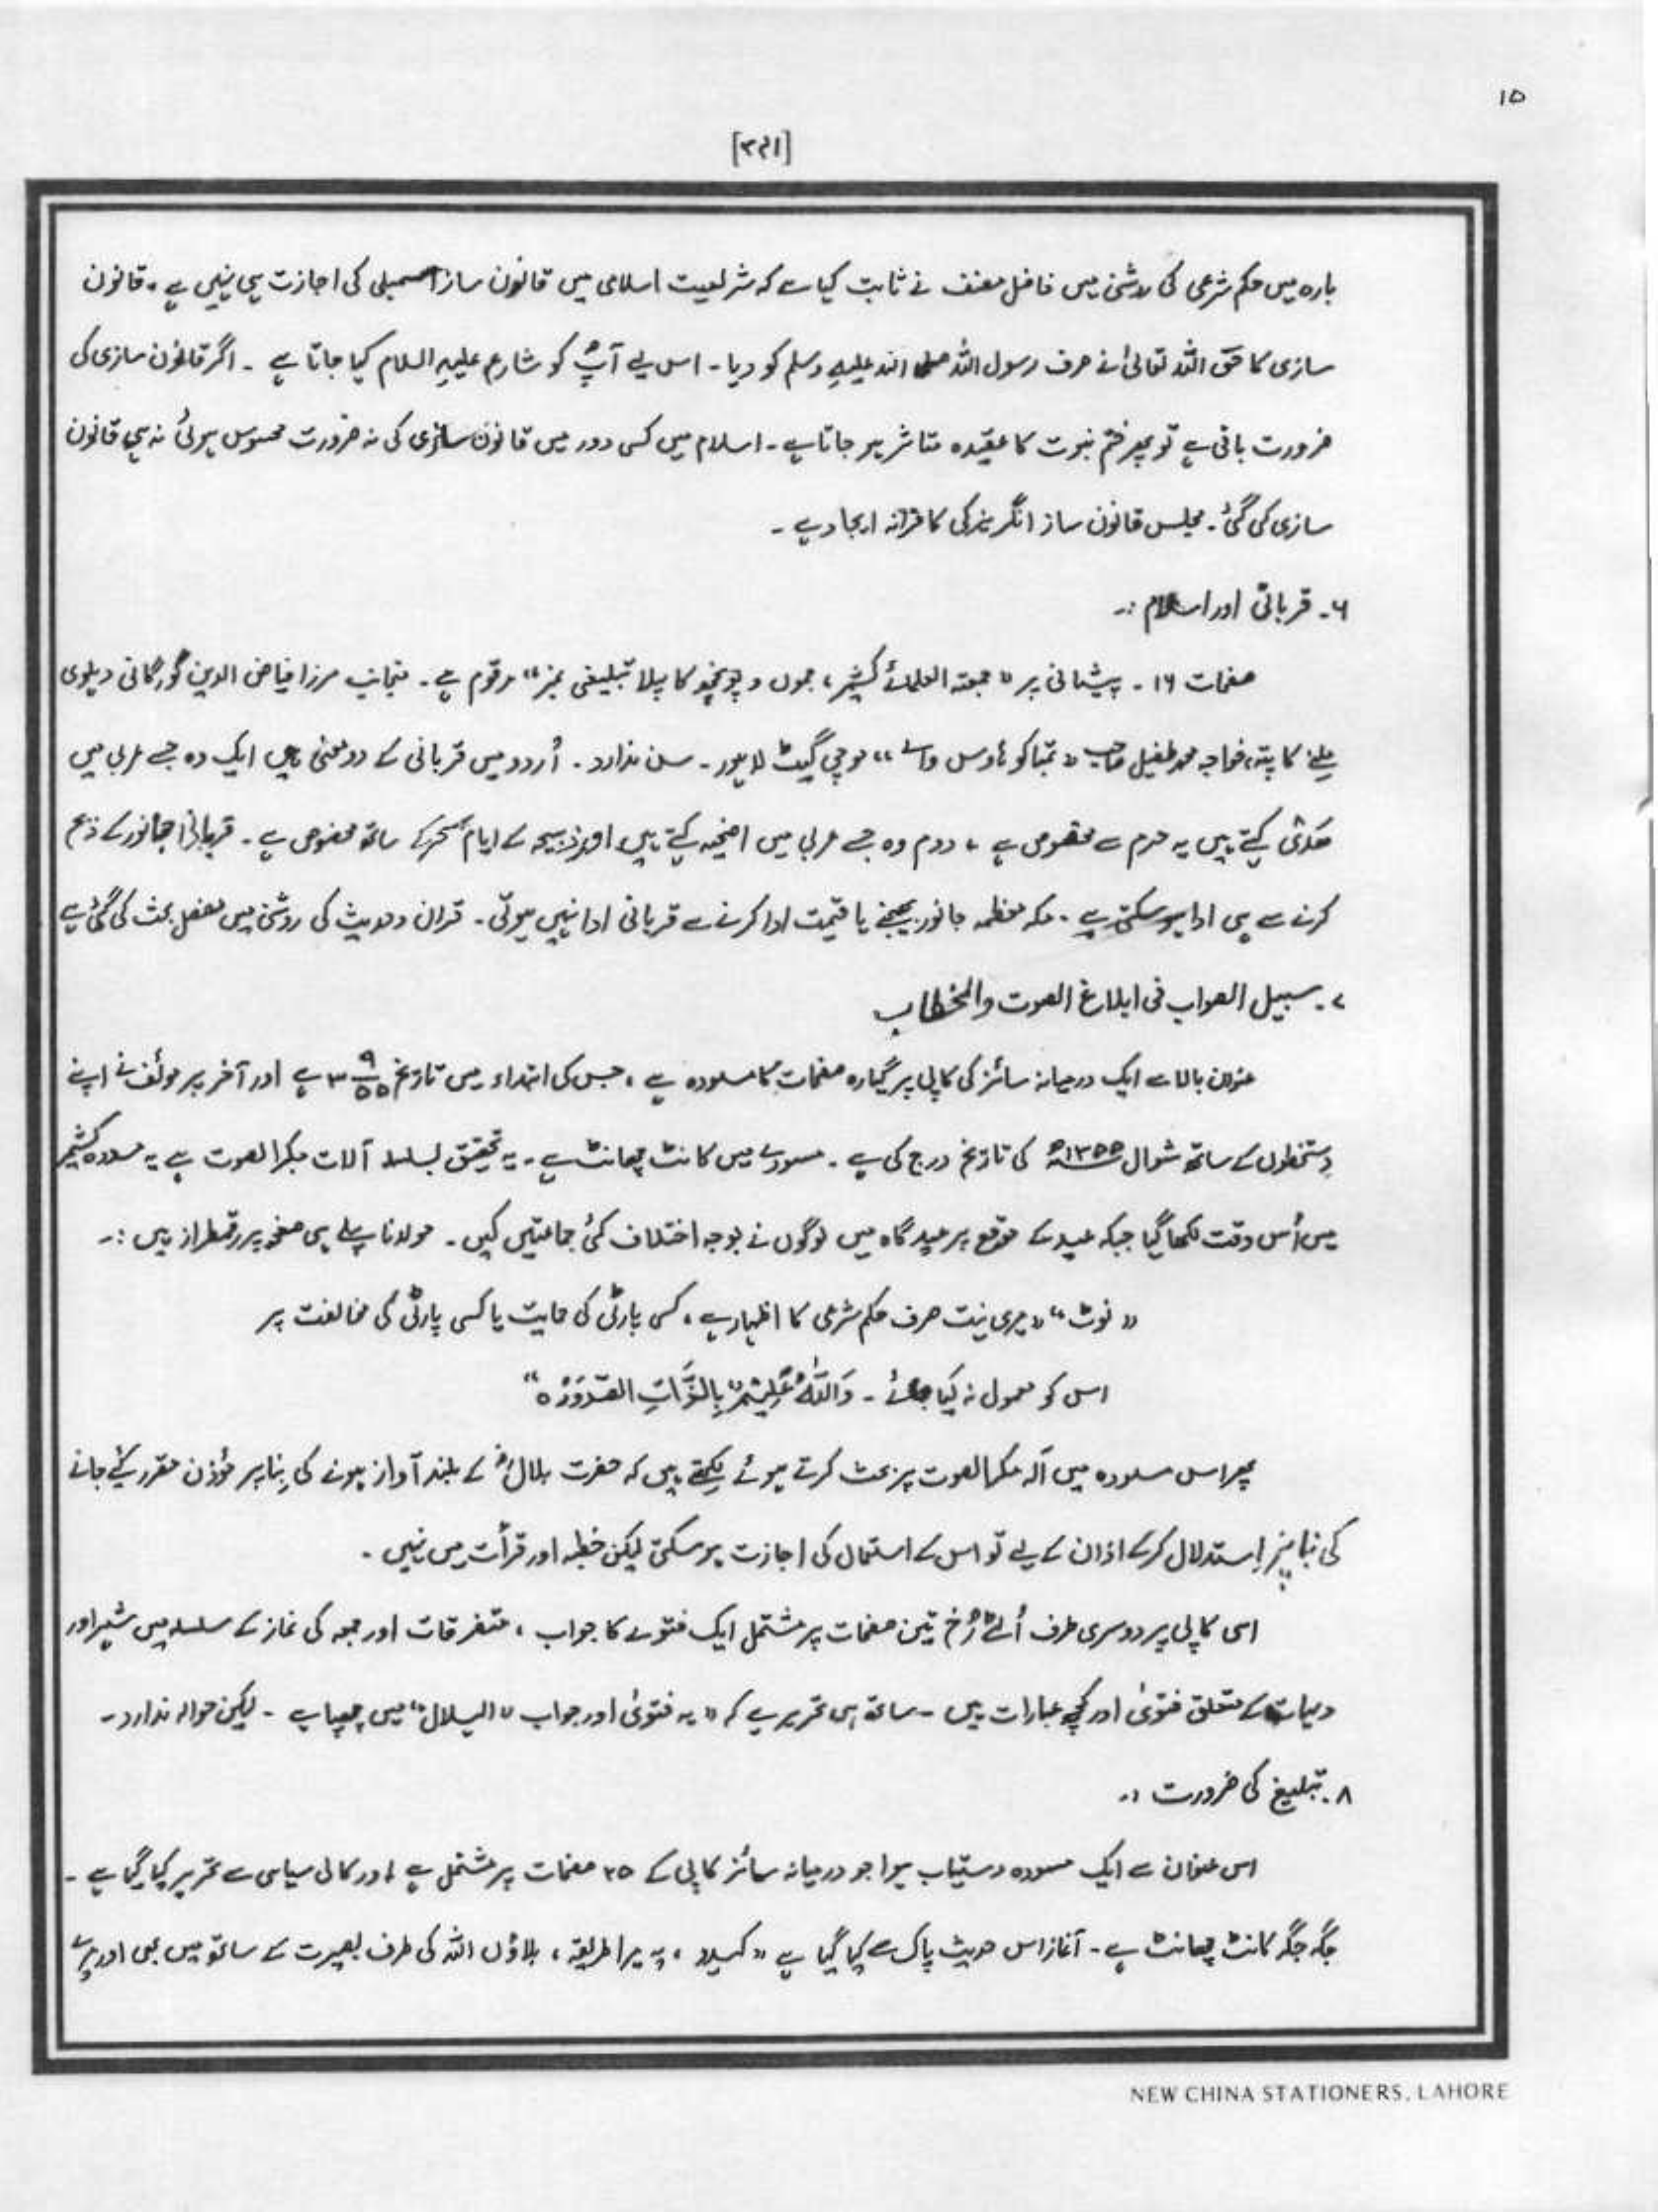 ۱۵
[۳۶۱]
بارہ میں حکم شرعی کی روشنی میں فاضل مصنف نے ثابت کیا ہے کہ شریعت اسلامی میں قانون ساز اسمبلی کی اجازت ہی نہیں ہے۔ قانون
سازی کا حق اللہ تعالیٰ نے صرف رسول اللہ صلی اللہ علیہ وسلم کو دیا۔ اس لیے آپؐ کو شارع علیہ السلام کہا جاتا ہے ۔ اگر قانون سازی کی
ضرورت باقی ہے تو پھر ختم نبوت کا عقیدہ متاثر ہو جاتا ہے ۔ اسلام میں کسی دور میں قانون سازی کی نہ ضرورت محسوس ہوئی نہ ہی قانون
سازی کی گئی۔ مجلس قانون ساز انگریز کی کافرانہ ایجاد ہے ۔
۶۔ قربانی اور اسلام :۔
صفحات ۱۶ ۔ پیشانی پر "جمعتہ العلمائے کشمیر، جموں و پونچھ کا پہلا تبلیغی نمبر" مرقوم ہے۔ منجانب مرزا فیاض الدین گورگانی دہلوی
ملنے کا پتہ، خواجہ محمد طفیل صاحب "تمباکو ہاوس والے" موچی گیٹ لاہور ۔ سن ندارد ۔ اُردو میں قربانی کے دو معنی ہیں ایک وہ جسے عربی میں
ھَدْی کہتے ہیں یہ حرم سے مخصوص ہے ، دوم وہ جسے عربی میں اضحیہ کہتے ہیں اور ذبیحہ کے ایام نحر کے ساتھ مخصوص ہے ۔ قربانی جانور کے ذبح
کرنے سے ہی ادا ہو سکتی ہے ۔ مکہ معظمہ جانور بھیجنے یا قیمت ادا کرنے سے قربانی ادا نہیں ہوتی ۔ قران و حدیث کی روشنی میں مفصل بحث کی گئی ہے
۷۔ سبیل الصواب فی ابلاغ الصوت والخطاب
عنوان بالا سے ایک درمیانہ سائز کی کاپی پر گیارہ صفحات کا مسودہ ہے ، جس کی ابتداء میں تاریخ ۳ ۹/۵۵ ہے اور آخر پر مولف نے اپنے
دستخطوں کے ساتھ شوال ۱۳۵۵ھ کی تاریخ درج کی ہے ۔ مسودے میں کانٹ چھانٹ ہے ۔ یہ تحقیق بسلسلہ آلات مکبر الصوت ہے یہ مسودہ کشمیر
میں اُس وقت لکھا گیا جبکہ عید کے موقع پر عید گاہ میں لوگوں نے بوجہ اختلاف کئی جماعتیں کیں ۔ مولانا پہلے ہی صفحہ پر رقمطراز ہیں :۔
"نوٹ" "میری نیت صرف حکم شرعی کا اظہار ہے ، کسی پارٹی کی حمایت یا کسی پارٹی کی مخالفت پر
اس کو محمول نہ کیا جائے ۔ وَاللّٰہُ عَلِیْمٌ بِالذَّاتِ الصُّدُوْرِ ہ"
پھر اس مسودہ میں آلہ مکبر الصوت پر بحث کرتے ہوئے لکھتے ہیں کہ حضرت بلالؓ کے بلند آواز ہونے کی بِنا پر مؤذن مقرر کئے جانے
کی بنا پر اِستدلال کرکے اذان کے لیے تو اس کے استعمال کی اجازت ہو سکتی لیکن خطبہ اور قرأت میں نہیں ۔
اسی کاپی پر دوسری طرف اُلٹے رُخ تین صفحات پر مشتمل ایک فتوے کا جواب ، متفرقات اور جمعہ کی نماز کے سلسلہ میں شہر اور
دیہات کے متعلق فتویٰ اور کچھ عبارات ہیں ۔ ساتھ ہی تحریر ہے کہ "یہ فتویٰ اور جواب "الہلال" میں چھپا ہے ۔ لیکن حوالہ ندارد ۔
۸۔ تبلیغ کی ضرورت :۔
اس عنوان سے ایک مسودہ دستیاب ہوا جو درمیانہ سائز کاپی کے ۲۵ صفحات پر مشتمل ہے اور کالی سیاہی سے تحریر کیا گیا ہے ۔
جگہ جگہ کانٹ چھانٹ ہے ۔ آغاز اس حدیث پاک سے کیا گیا ہے "کہدو ، یہ میرا طریقہ ، بلاؤں اللہ کی طرف بصیرت کے ساتھ میں بھی اور میرے
NEW CHINA STATIONERS, LAHORE